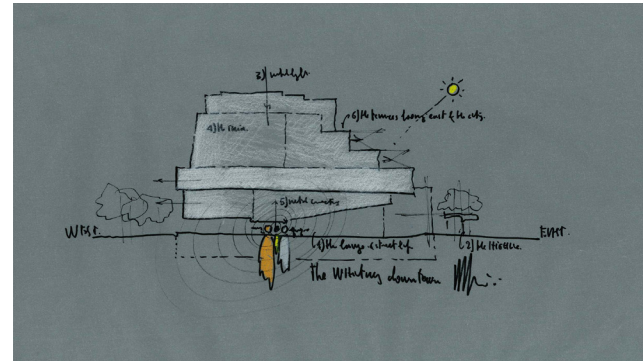 3) natural light.
6) the terraces facing east & the city.
4) the skin.
5) public
West.
East.
1) the largo & street
2) the Highline.
The Whitney downtown